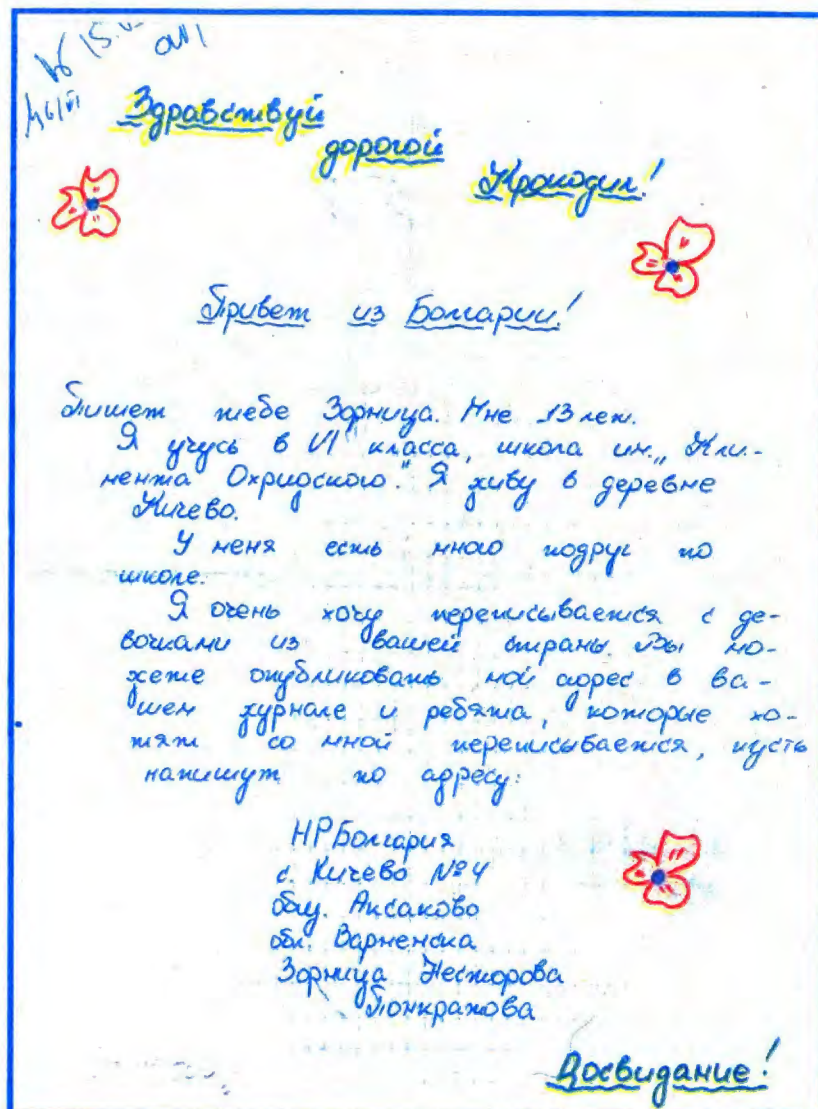 Здравствуй
дорогой
Крокодил!
Привет из Болгарии!
Пишет тебе Зорница. Мне 13 лет.
Я учусь в VI класса, школа им. „Кли-
мента Охридского." Я живу в деревне
Кичево.
У меня есть много подруг по
школе.
Я очень хочу переписывается с де-
вочками из вашей страны. Вы мо-
жете опубликовать мой адрес в ва-
шем журнале и ребята, которые хо-
тят со мной переписываетсся, пусть
напишут по адресу:
НРБолгария
с. Кичево №4
общ. Аксаково
обл. Варненска
Зорница Несторова
Понкратова
Досвидание!